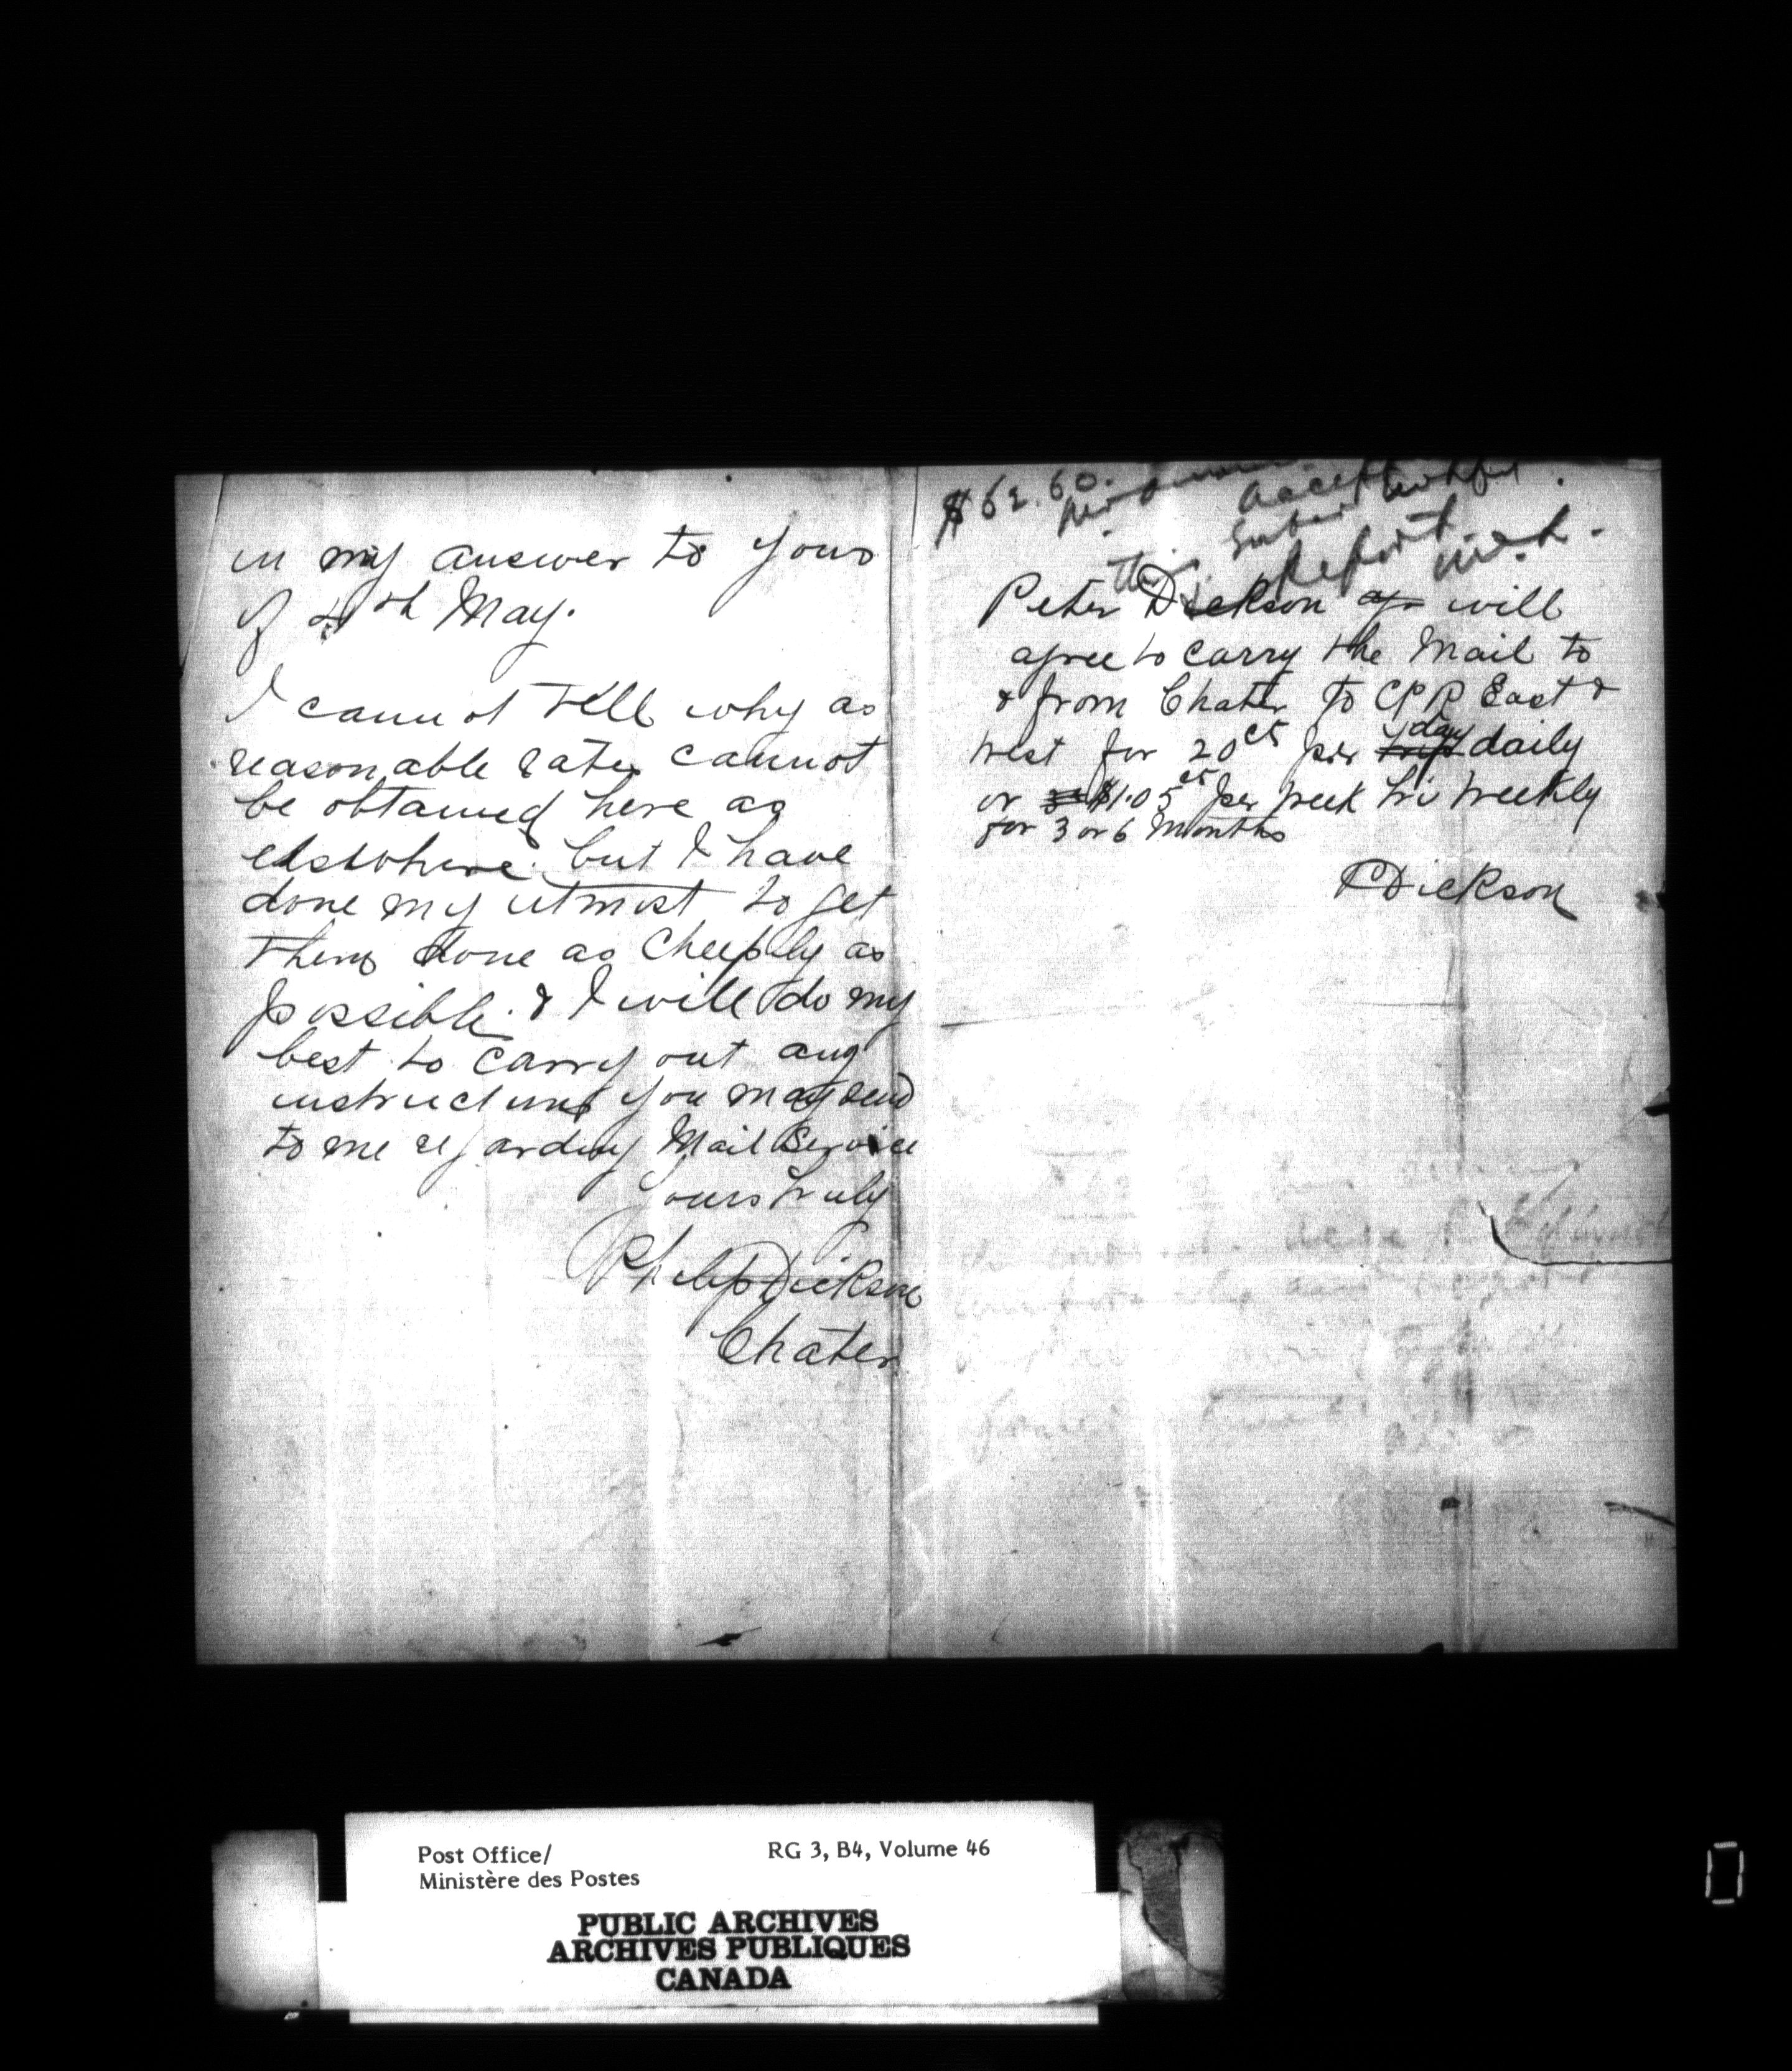 in my answer to yours
of 4th May.
I cannot tell why as
reasonable rates cannot
be obtained here as
elsewhere. but I have
done my utmost to get
them done as cheeply as
possible. & I will do my
best to carry out any
instructions you may send
to me regarding Mail Service
yours truly
Philip Dickson
Chater
$62.60.
accept
this
Report
Peter Dickson agr will
agree to carry the Mail to
& from Chater to CPR East &
west for 20cts per trip day daily
or $1.05cts per week tri weekly
for 3 or 6 Months
PDickson
Post Office/
Ministère des Postes
RG 3, B4, Volume 46
PUBLIC ARCHIVES
ARCHIVES PUBLIQUES
CANADA